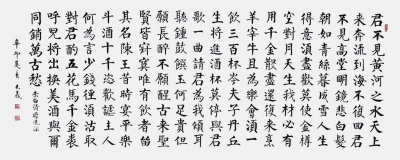 君不見黃河之水天上
來奔流到海不復回君
不見高堂明鏡悲白髮
朝如青絲暮成雪人生
得意須盡歡莫使金樽
空對月天生我材必有
用千金散盡還復來烹
羊宰牛且為樂會須一
飲三百杯岑夫子丹丘
生將進酒杯莫停與君
歌一曲請君為我傾耳
聽鐘鼓饌玉何足貴但
願長醉不願醒古來聖
賢皆寂寞唯有飲者留
其名陳王昔時宴平樂
斗酒十千恣歡謔主人
何為言少錢徑須沽取
對君酌五花馬千金裘
呼兒將出換美酒與爾
同銷萬古愁 李白詩將進酒
辛卯夏月